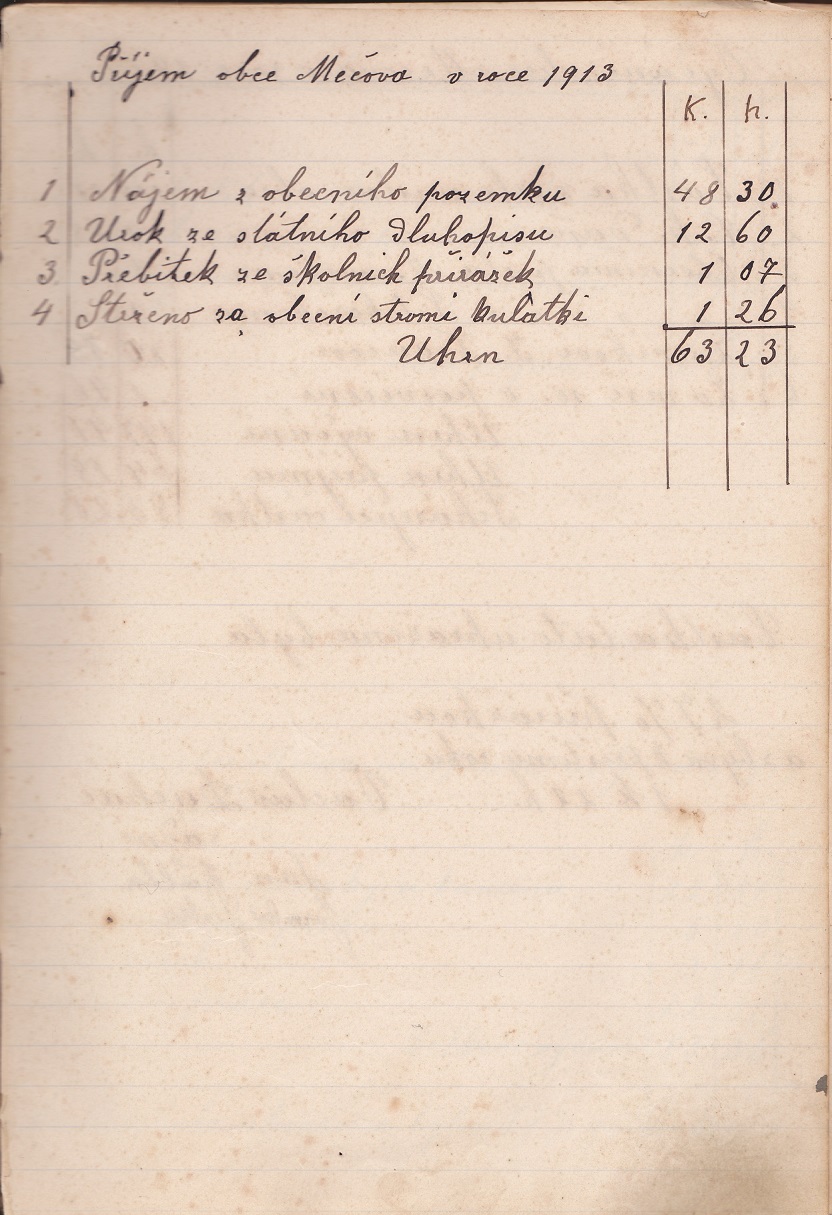 Příjem obce Mečova v roce 1913
K. h.
1 Nájem z obecního pozemku 48 30
2 Urok ze státního dluhopisu 12 60
3 Přebitek ze školnich přirážek 1 07
4 Strženo za obecní stromi kulatki 1 26
Uhrn 63 23